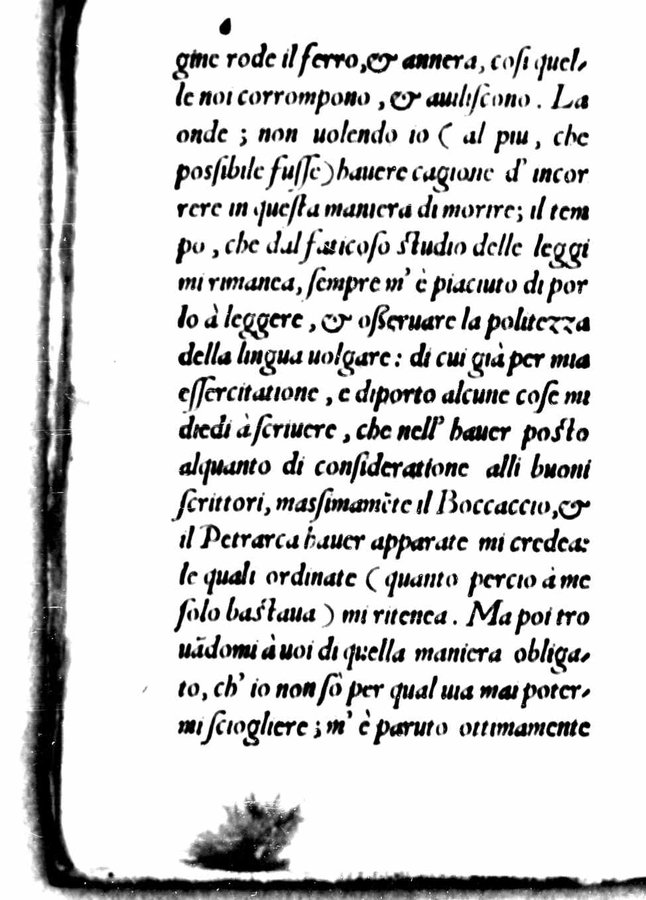 gine rode il ferro, & annera, coſi quel-
le noi corrompono, & auiliſcono. La
onde; non uolendo io (al piu, che
poſſibile fuſſe) hauere cagione d' incor
rere in queſta maniera di morire; il tem
po, che dal faticoſo ſtudio delle leggi
mi rimanea, ſempre m' è piaciuto di por
lo à leggere, & oſſeruare la politezza
della lingua uolgare: di cui già per mia
eſſercitatione, e diporto alcune coſe mi
diedi à ſcriuere, che nell' hauer poſto
alquanto di conſideratione alli buoni
ſcrittori, maſſimamēte il Boccaccio, &
il Petrarca hauer apparate mi credea:
le quali ordinate (quanto percio à me
ſolo baſtaua) mi ritenea. Ma poi tro
uādomi à uoi di quella maniera obliga-
to, ch' io non ſò per qual uia mai poter-
mi ſciogliere; m' è paruto ottimamente